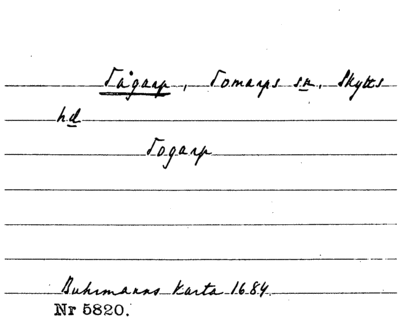 Tågarp, Tomarps sn, Skytts
hd
Togarp
Buhrmanns Karta 1684.
Nr 5820.